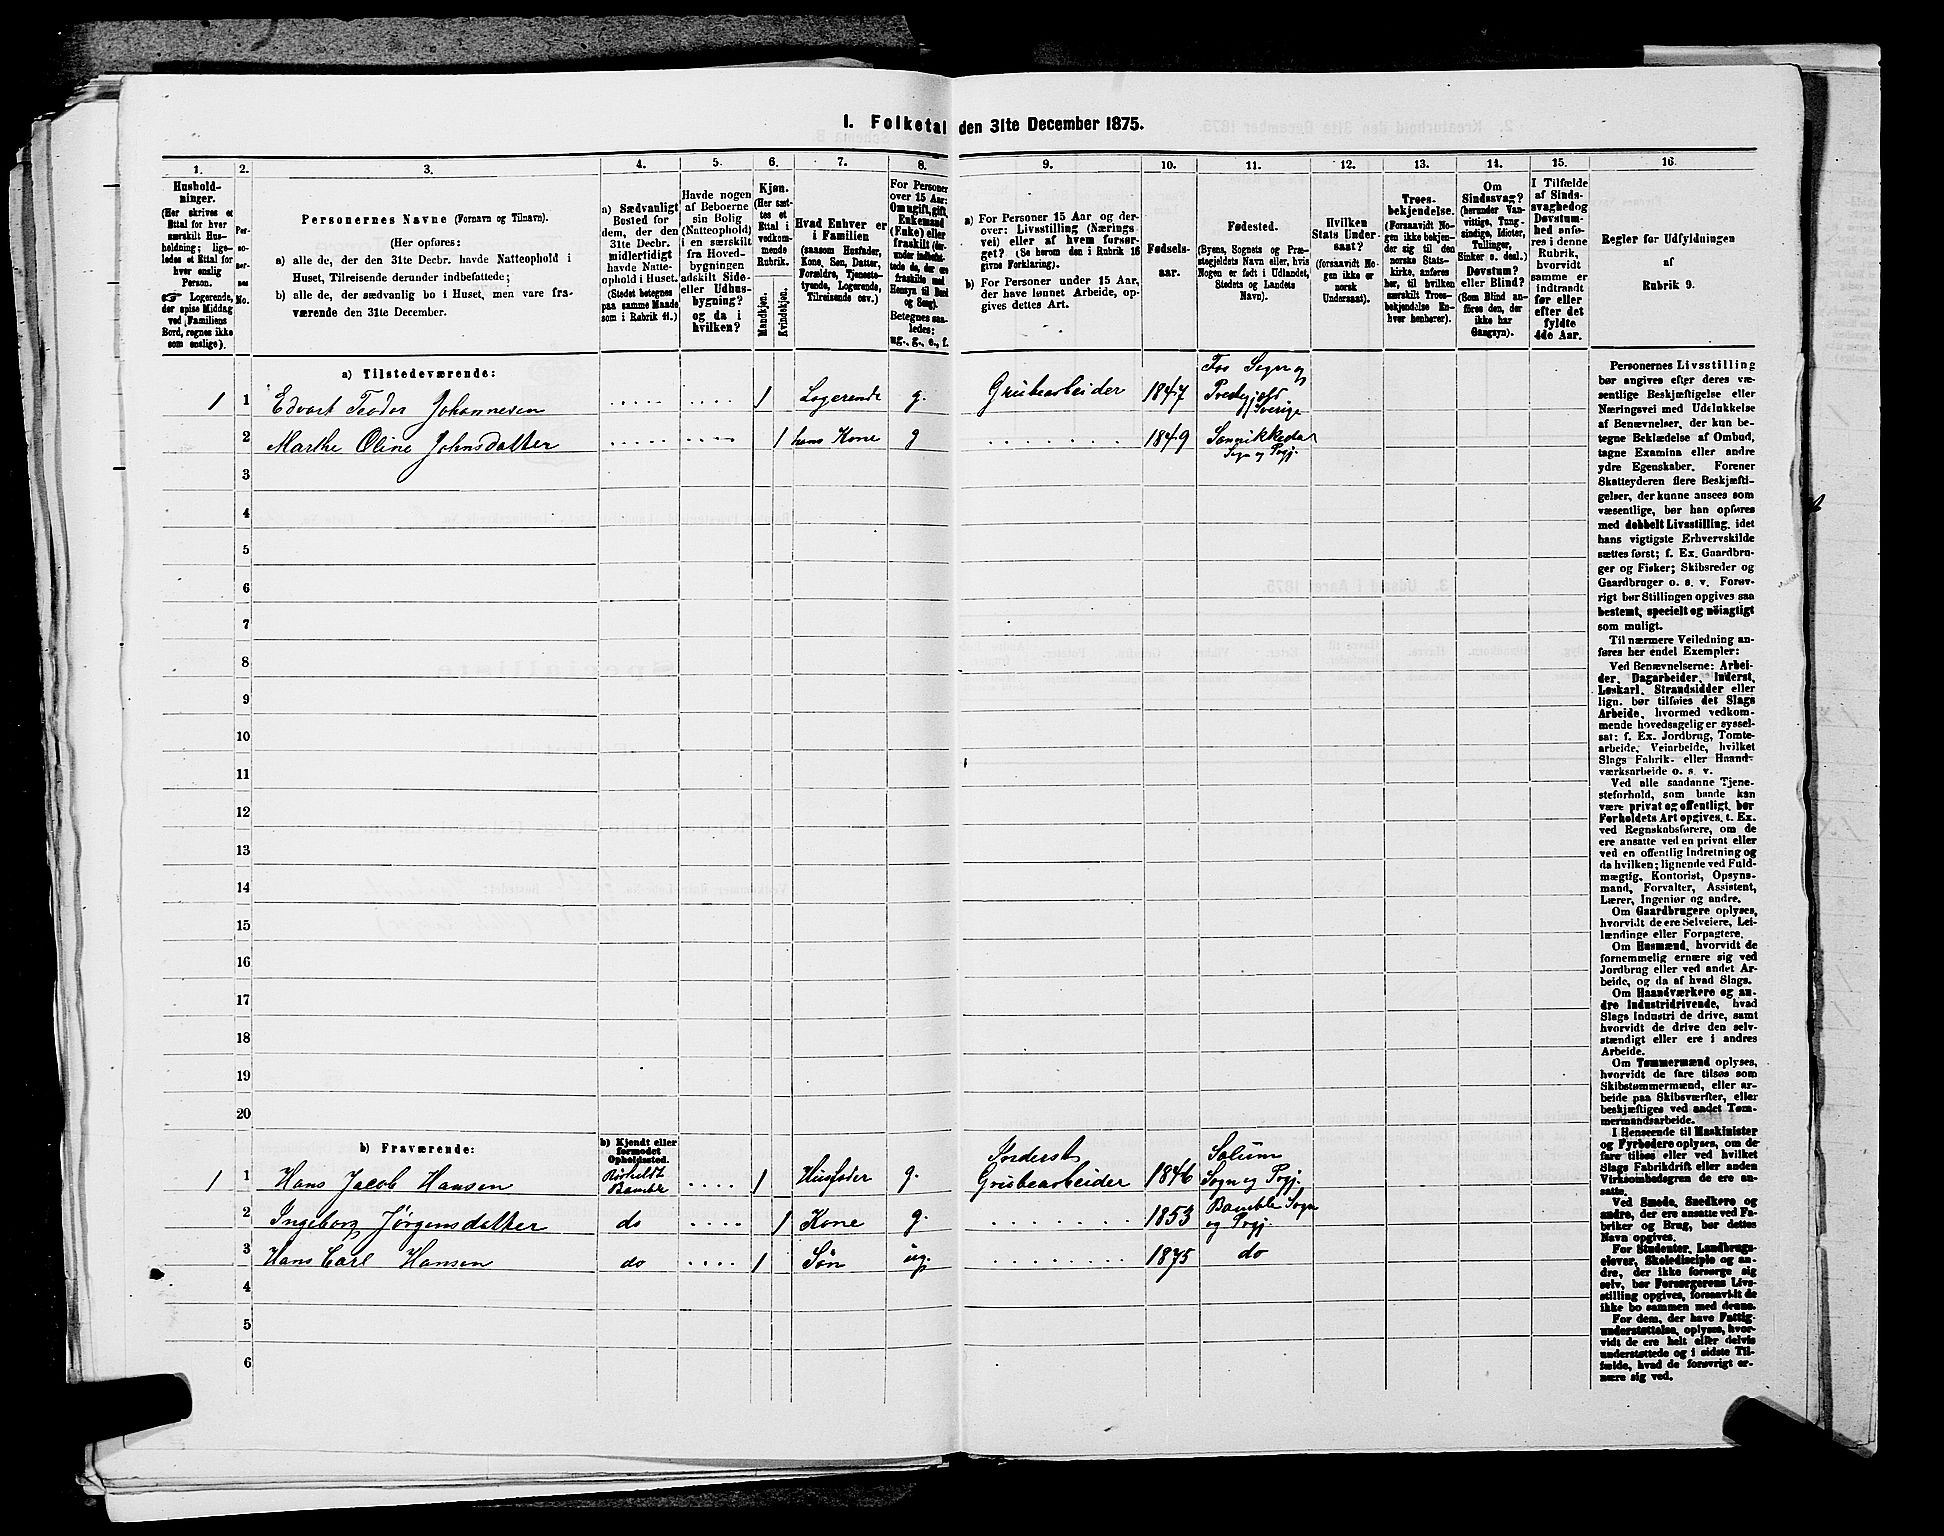 1. Folketal den 31te December 1875.
1. 2. 3. 4. 5. 6. 7. 8. 9. 10. 11. 12. 13. 14. 15. 16.
Hushold-
ninger.
(Her skrives et
Ettal for hver
særskilt Hus-
holdning; lige-
ledes et Ettal for
hver enslig
Person.
☞ Logerende,
der spise Middag
ved Familiens
Bord, regnes ikke
som enslige).
Per-
so-
ner-
nes
No.
Personernes Navne (Fornavn og Tilnavn).
(Her opføres:
a) alle de, der den 31te Decbr. havde Natteophold i
Huset, Tilreisende derunder indbefattede;
b) alle de, der sædvanlig bo i Huset, men vare fra-
værende den 31te December.
a) Sædvanligt
Bosted for
dem, der den
31te Decbr.
midlertidigt
havde Natte-
ophold i Huset.
(Stedet betegnes
paa samme Maade
som i Rubrik 11.)
Havde nogen
af Beboerne
sin Bolig
(Natteophold)
i en særskilt
fra Hoved-
bygningen
adskilt Side-
eller Udhus-
bygning?
og da i
hvilken?
Kjøn.
(Her sæt-
tes et
Ettal i
vedkom-
mende
Rubrik.
Mandkjøn.
Kvindekjøn.
Hvad Enhver er
i Familien
(saasom Husfader,
Kone, Søn, Datter,
Forældre, Tjeneste-
tyende, Logerende,
Tilreisende osv.)
For Personer
over 15 Aar:
Om ugift, gift,
Enkemand
(Enke) eller
fraskilt (der-
under indbefat-
tede de, der ere
fraskilte med
Hensyn til Bord
og Seng).
Betegnes saa-
ledes:
ug., g., e., f.
a) For Personer 15 Aar og der-
over: Livsstilling (Nærings-
vei) eller af hvem forsør-
get? (Se herom den i Rubrik 16
givne Forklaring).
b) For Personer under 15 Aar,
der have lønnet Arbeide, op-
gives dettes Art.
Fødsels-
aar.
Fødested.
(Byens, Sognets og Præ-
stegjeldets Navn eller, hvis
Nogen er født i Udlandet,
Stedets og Landets
Navn).
Hvilken
Stats Under-
saat?
(forsaavidt No-
gen ikke er
norsk
Undersaat).
Troes-
bekjendelse.
(Forsaavidt No-
gen ikke bekjen-
der sig til den
norske Stats-
kirke, anføres
her, til hvilken
særskilt Troes-
bekjendelse En-
hver henhører).
Om
Sindssvag?
(herunder Van-
vittige, Tung-
sindige, Idioter,
Tullinger,
Sinker o. desl.)
Døvstum?
eller Blind?
(Som Blind an-
føres den, der
ikke har
Gangsyn).
I Tilfælde
af Sinds-
svaghed og
Døvstum-
hed anfø-
res i denne
Rubrik,
hvorvidt
samme er
indtraadt
før eller
efter det
fyldte
4de Aar.
Regler for Udfyldningen
af
Rubrik 9.
a) Tilstedeværende:
1 1 Edvart Teodor Johannesen ..... .... 1 Logerende g. Grubearbeider 1847 Fos Sogn og
Prestegjeld
Sverige
2 Marthe Oline Johnsdatter ....... ..... 1 hans Kone g ....... 1849 Sannikkedal
Sogn og Prgj.
3
4
5
6
7
8
9
10
11
12
13
14
15
16
17
18
19
20
b) Fraværende:
b) Kjendt eller
formodet
Opholdssted.
1 1 Hans Jacob Hansen Bamble .... 1 Husfader g. Inderst
Grubearbeider 1846 Solum
Sogn og Prgj.
2 Ingeborg Jørgensdatter do .... 1 Kone g. ....... 1853 Bamble Sogn
og Prgj.
3 Hans Carl Hansen do .... 1 Søn ug. ....... 1875 do
4
5
6
Personernes Livsstilling
bør angives efter deres væ-
sentlige Beskjæftigelse eller
Næringsvei med Udelukkelse
af Benævnelser, der kun be-
tegne Beklædelse af Ombud,
tagne Examina eller andre
ydre Egenskaber. Forener
Skatteyderen flere Beskjæfti-
gelser, der kunne ansees som
væsentlige, bør han opføres
med dobbelt Livsstilling, idet
hans vigtigste Erhvervskilde
sættes først; f. Ex. Gaardbru-
ger og Fisker; Skibsreder og
Gaardbruger o. s. v. Forøv-
rigt bør Stillingen opgives saa
bestemt, specielt og nöiagtigt
som muligt.
Til nærmere Veiledning an-
føres her endel Exempler:
Ved Benævnelserne: Arbei-
der, Dagarbeider, Inderst,
Løskarl, Strandsidder eller
lign. bør tilføies det Slags
Arbeide, hvormed vedkom-
mende hovedsagelig er syssel-
sat; f. Ex. Jordbrug, Tomte-
arbeide, Veiarbeide, hvilket
Slags Fabrik- eller Haand-
værksarbeide o. s. v.
Ved alle saadanne Tjene-
steforhold, som baade kan
være privat og offentligt, bør
Forholdets Art opgives, t. Ex.
ved Regnskabsførere, om de
ere ansatte ved en privat eller
ved en offentlig Indretning og
da hvilken; lignende ved Fuld-
mægtig, Kontorist, Opsyns-
mand, Forvalter, Assistent,
Lærer, Ingeniør og andre.
Om Gaardbrugere oplyses,
hvorvidt de ere Selveiere, Lei-
lændinge eller Forpagtere.
Om Husmænd, hvorvidt de
fornemmelig ernære sig ved
Jordbrug eller ved andet Ar-
beide, og da af hvad Slags.
Om Haandværkere og an-
dre Industridrivende, hvad
Slags Industri de drive, samt
hvorvidt de drive den selv-
stændigt eller ere i andres
Arbeide.
Om Tømmermænd oplyses,
hvorvidt de fare tilsøs som
Skibstømmermænd, eller ar-
beide paa Skibsværfter, eller
beskjæftiges ved andet Tøm-
mermandsarbeide.
I Henseende til Maskinister
og Fyrbødere oplyses, om de
fare tilsøs eller ved hvilket
Slags Fabrikdrift eller anden
Virksomhedsgren de ere an-
satte.
Ved Smede, Snedkere og
andre, der ere ansatte ved Fa-
briker og Brug, bør dettes
Navn opgives.
For Studenter, Landbrugs-
elever, Skoledisciple og an-
dre, der ikke forsørge sig
selv, bør Forsørgerens Livs-
stilling opgives, forsaavidt de
ikke bo sammen med denne.
For dem, der have Fattig-
understøttelse, oplyses, hvor-
vidt de ere helt eller delvis
understøttede og i sidste Til-
fælde, hvad de forøvrigt er-
nære sig ved.